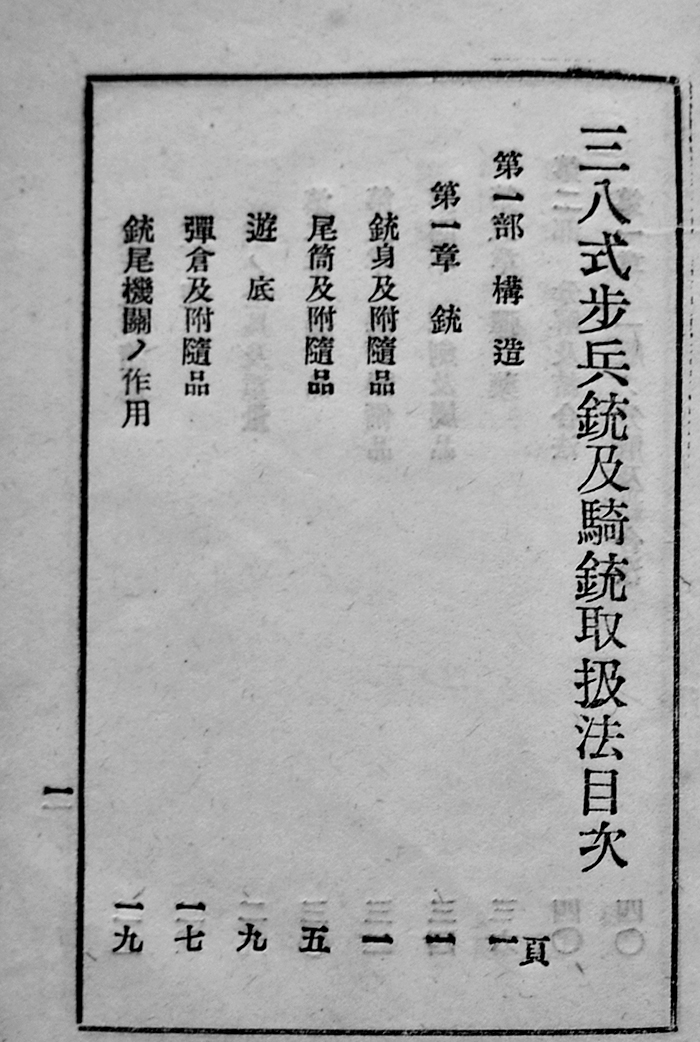 三八式步兵銃及騎銃取扱法目次
頁
第一部　構造　一
第一章　銃　一
銃身及附隨品　一
尾筒及附隨品　五
遊底　九
彈倉及附隨品　一七
銃尾機關ノ作用　一九
一